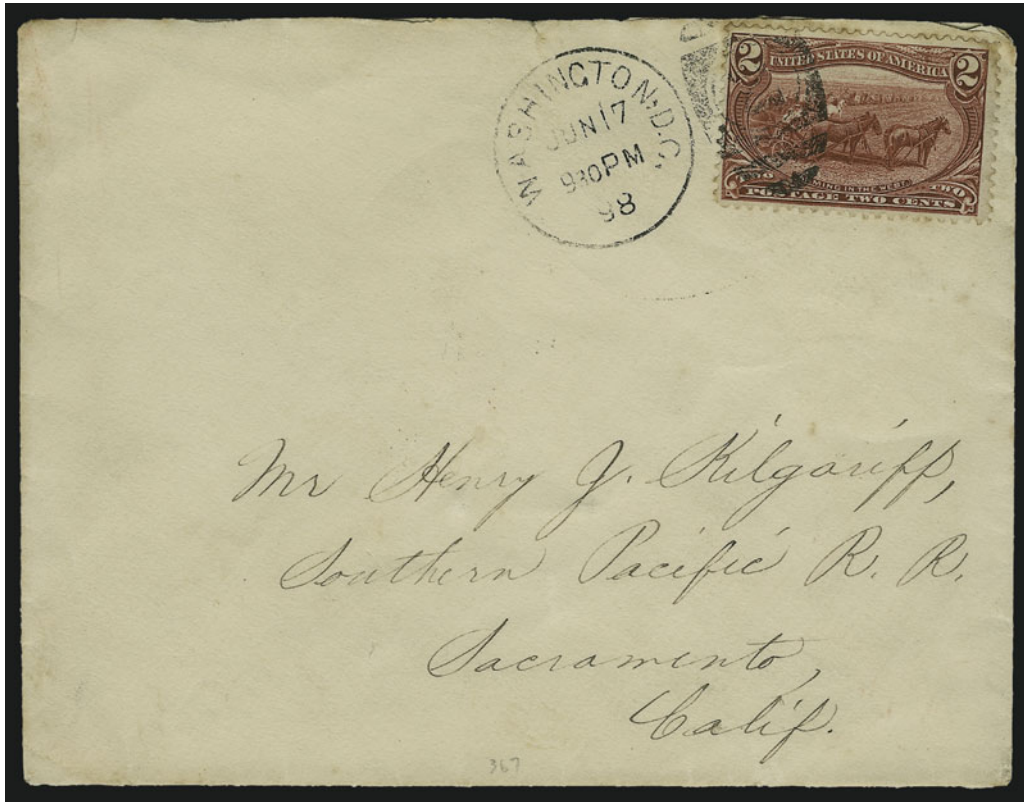 WASHINGTON, D.C.
JUN 17
930PM
98
2 UNITED STATES OF AMERICA 2
TWO TWO
POSTAGE TWO CENTS
Mr Henry J. Kilgariff,
Southern Pacific R. R.
Sacramento,
Calif.
367